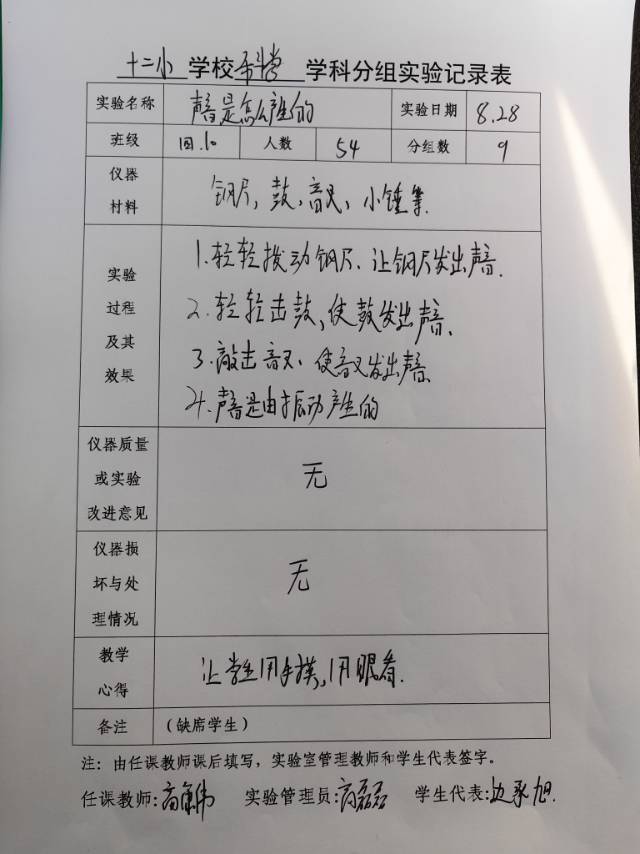 十二小学校科学学科分组实验记录表
实验名称 声音是怎么产生的 实验日期 8.28
班级 四.10 人数 54 分组数 9
仪器材料 钢尺,鼓,音叉,小锤等.
实验过程及其效果
1.轻轻拨动钢尺.让钢尺发出声音.
2.轻轻击鼓,使鼓发出声音.
3.敲击音叉、使音叉发出声音.
4.声音是由振动产生的
仪器质量或实验改进意见 无
仪器损坏与处理情况 无
教学心得 让学生用手摸,用眼看.
备注 (缺席学生)
注:由任课教师课后填写,实验室管理教师和学生代表签字。
任课教师:高 伟 实验管理员:高磊磊 学生代表:边承旭.